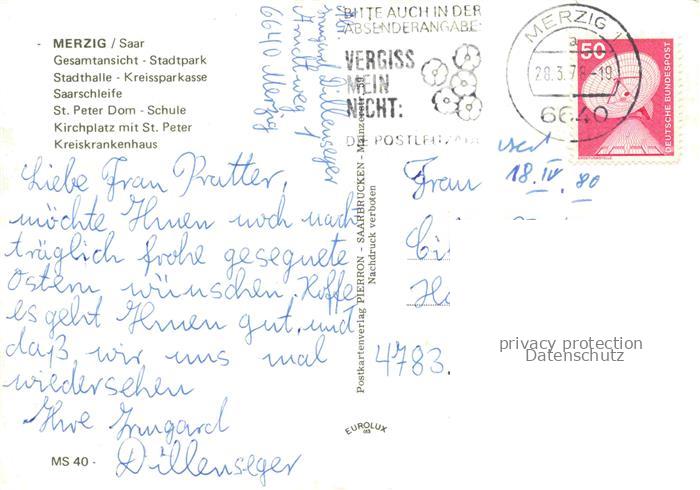 MERZIG / Saar
Gesamtansicht - Stadtpark
Stadthalle - Kreissparkasse
Saarschleife
St. Peter Dom - Schule
Kirchplatz mit St. Peter
Kreiskrankenhaus
Irmgard Dillenseger
6640 Merzig
BITTE AUCH IN DER
ABSENDERANGABE:
VERGISS
MEIN
NICHT:
DIE POSTLEITZAHL
MERZIG 1
a
28.3.78-19
6640
50
DEUTSCHE BUNDESPOST
Liebe Frau Pratter,
möchte Ihnen noch nach
träglich frohe gesegnete
Ostern wünschen. Hoffe
es geht Ihnen gut, und
daß wir uns mal
wiedersehen
Ihre Irmgard
Dillenseger
MS 40 -
Postkartenverlag PIERRON - SAARBRÜCKEN - Mainzerstr. 59
Nachdruck verboten
EUROLUX
Frau
18. IV. 80
4783
privacy protection
Datenschutz